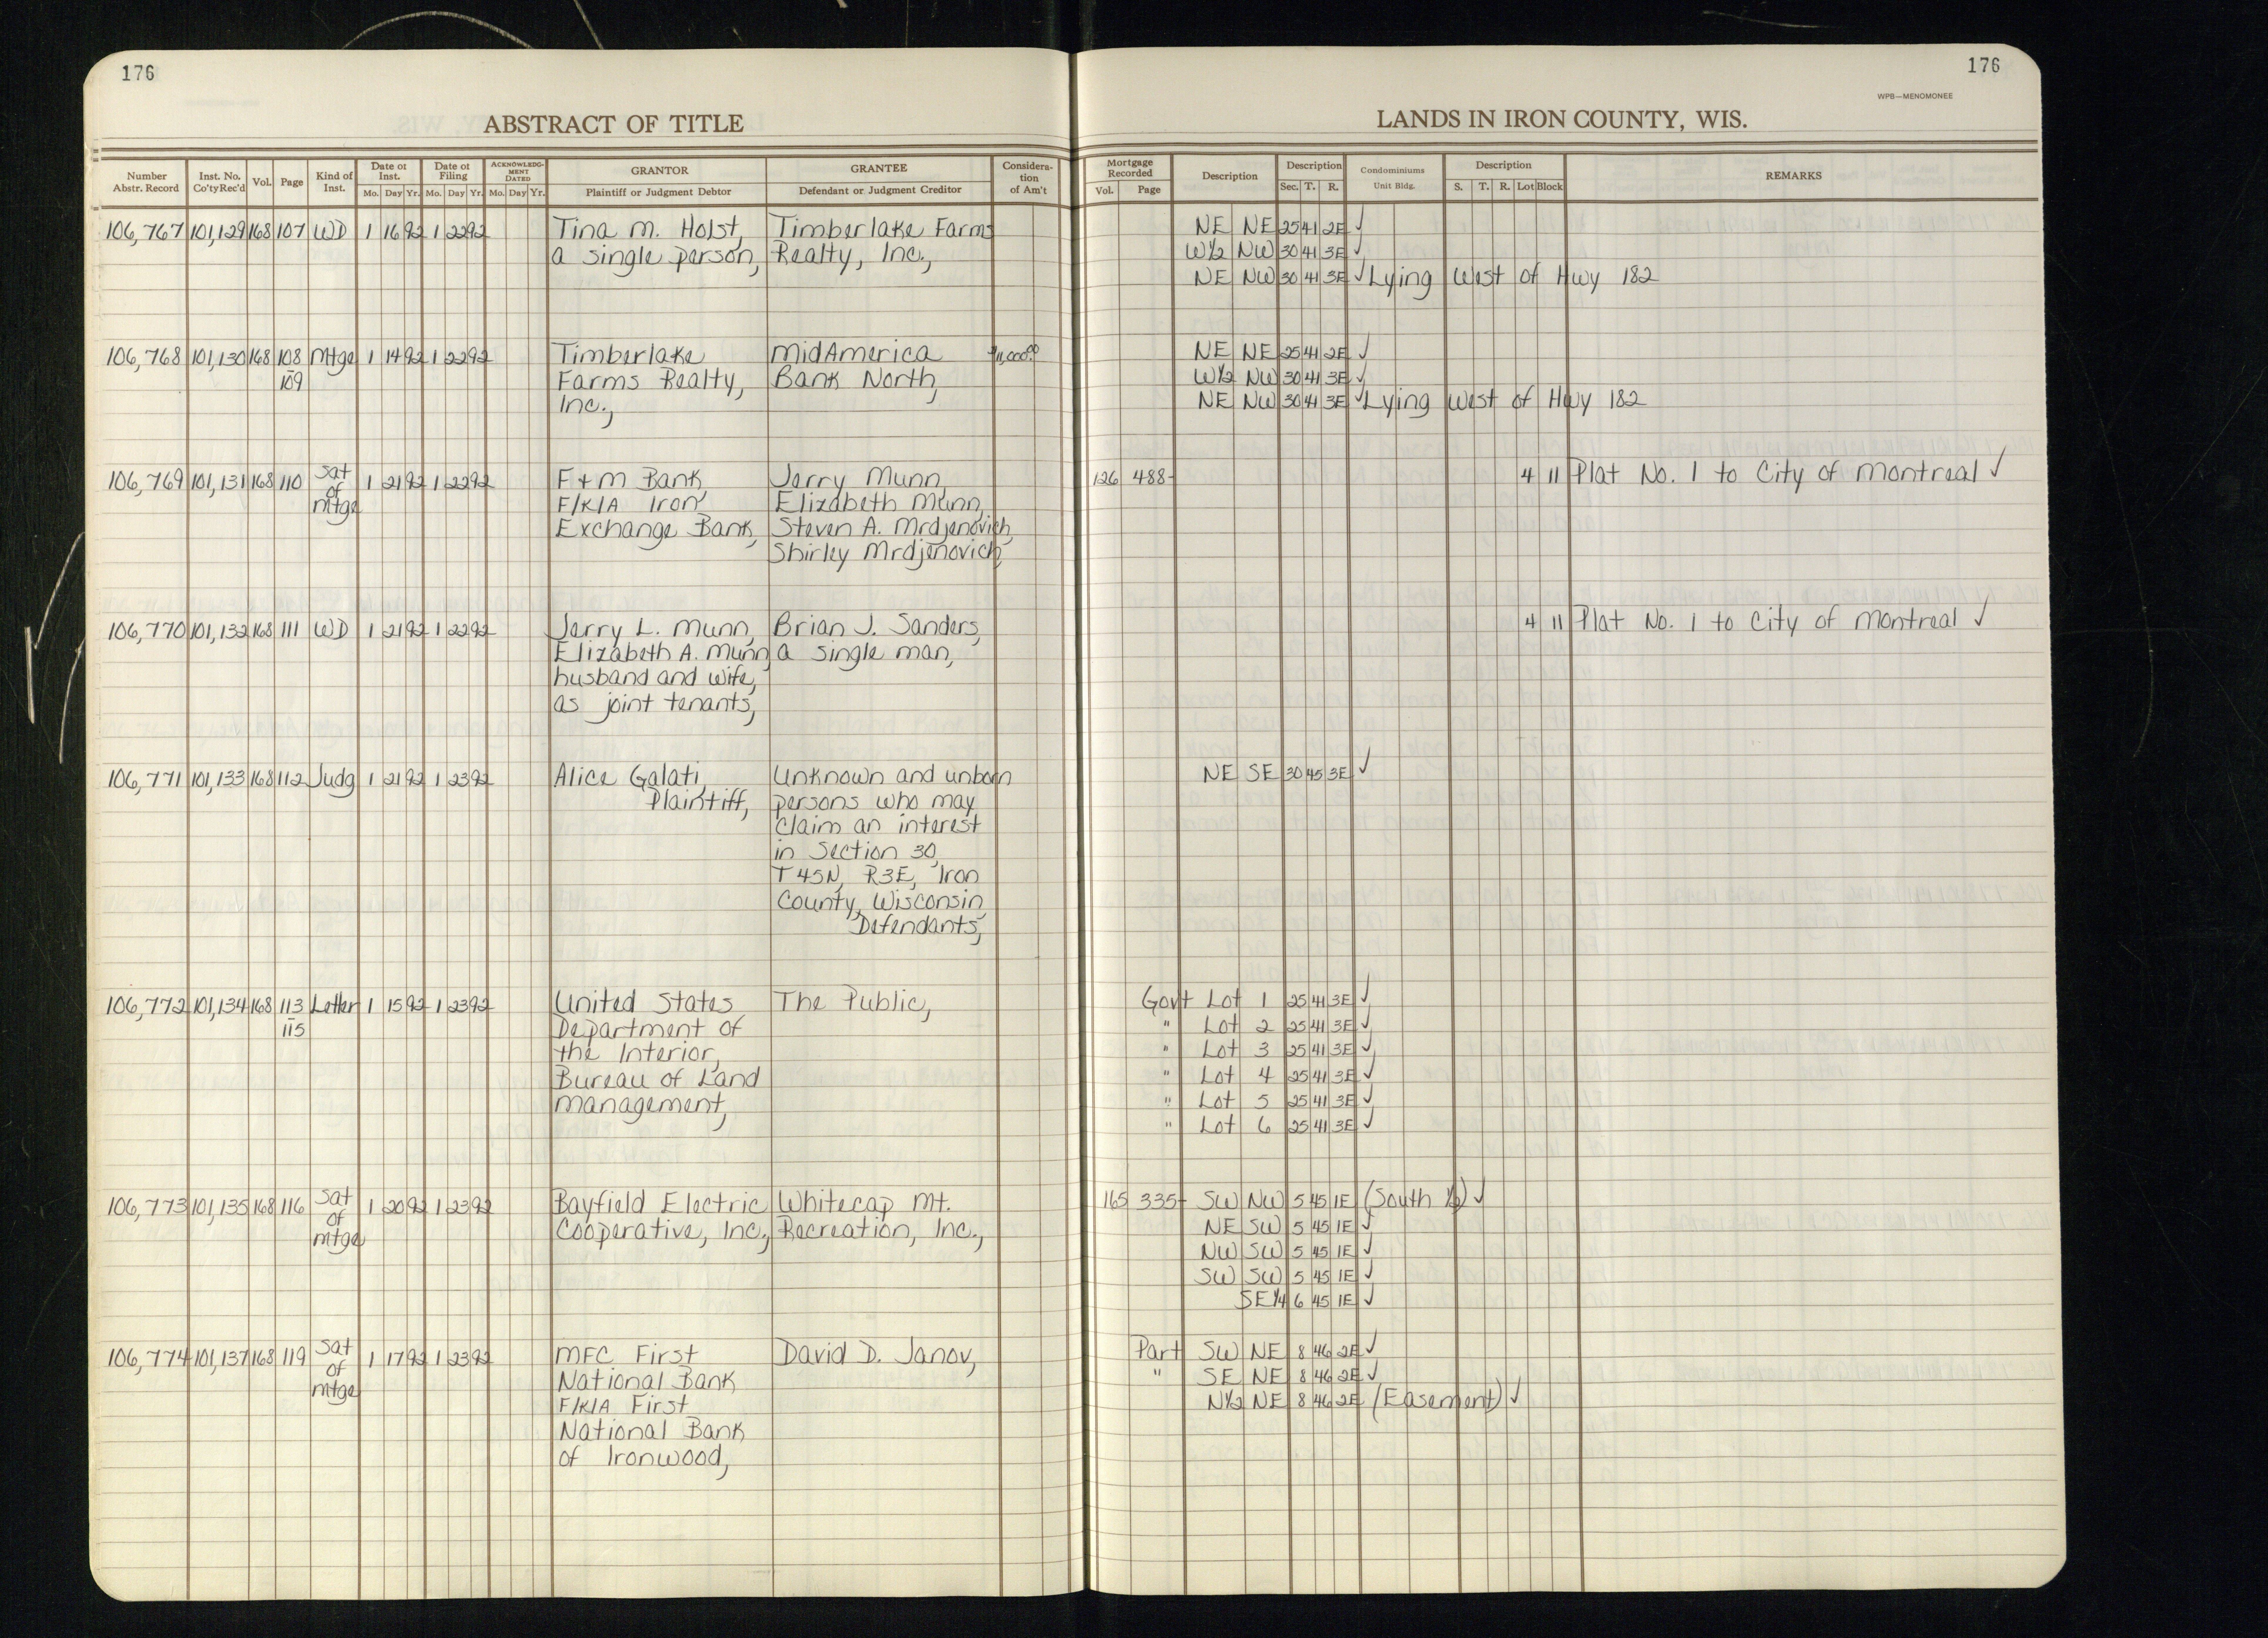 176
176
WPB—MENOMONEE
ABSTRACT OF TITLE
LANDS IN IRON COUNTY, WIS.
Number Abstr. Record
Inst. No. Co'ty Rec'd
Vol.
Page
Kind of Inst.
Date of Inst. Mo. Day Yr.
Date of Filing Mo. Day Yr.
ACKNOWLEDG-MENT DATED Mo. Day Yr.
GRANTOR Plaintiff or Judgment Debtor
GRANTEE Defendant or Judgment Creditor
Considera-tion of Am't
Mortgage Recorded Vol. Page
Description
Description Sec. T. R.
Condominiums Unit Bldg.
Description S. T. R. Lot Block
REMARKS
106,767 101,129 168 107 WD 1 16 92 1 22 92 Tina M. Holst, Timberlake Farms NE NE 25 41 2E ✓
a single person, Realty, Inc., W½ NW 30 41 3E ✓
NE NW 30 41 3E ✓ Lying West of Hwy 182
106,768 101,130 168 108 Mtge 1 14 92 1 22 92 Timberlake MidAmerica $11,000.00 NE NE 25 41 2E ✓
- 109 Farms Realty, Bank North, W½ NW 30 41 3E ✓
Inc., NE NW 30 41 3E ✓ Lying West of Hwy 182
106,769 101,131 168 110 Sat 1 21 92 1 22 92 F+M Bank Jerry Munn, 126 488- 4 11 Plat No. 1 to City of Montreal ✓
of F/K/A Iron Elizabeth Munn,
Mtge Exchange Bank, Steven A. Mrdjenovich,
Shirley Mrdjenovich,
106,770 101,132 168 111 WD 1 21 92 1 22 92 Jerry L. Munn, Brian J. Sanders, 4 11 Plat No. 1 to City of Montreal ✓
Elizabeth A. Munn, a single man,
husband and wife,
as joint tenants,
106,771 101,133 168 112 Judg 1 21 92 1 23 92 Alice Galati, Unknown and unborn NE SE 30 45 3E ✓
Plaintiff, persons who may
claim an interest
in Section 30,
T45N, R3E, Iron
County, Wisconsin,
Defendants,
106,772 101,134 168 113 Letter 1 15 92 1 23 92 United States The Public, Govt Lot 1 25 41 3E ✓
- 115 Department of " Lot 2 25 41 3E ✓
the Interior, " Lot 3 25 41 3E ✓
Bureau of Land " Lot 4 25 41 3E ✓
Management, " Lot 5 25 41 3E ✓
" Lot 6 25 41 3E ✓
106,773 101,135 168 116 Sat 1 20 92 1 23 92 Bayfield Electric Whitecap Mt. 165 335- SW NW 5 45 1E (South ½) ✓
of Cooperative, Inc., Recreation, Inc., NE SW 5 45 1E ✓
Mtge NW SW 5 45 1E ✓
SW SW 5 45 1E ✓
SE¼ 6 45 1E ✓
106,774 101,137 168 119 Sat 1 17 92 1 23 92 MFC First David D. Janov, Part SW NE 8 46 2E ✓
of National Bank " SE NE 8 46 2E ✓
Mtge F/K/A First N½ NE 8 46 2E (Easement) ✓
National Bank
of Ironwood,